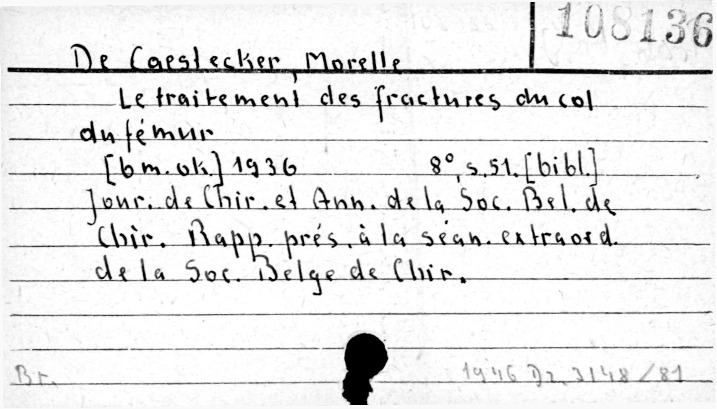 108136
De Caestecker, Morelle
Le traitement des fractures du col
du fémur
[b m. ok.] 1936 8°, s. 51. [bibl.]
Jour. de Chir. et Ann. de la Soc. Bel. de
Chir. Rapp. prés. à la séan. extraord.
de la Soc. Belge de Chir.
Br. 1946 Dz. 3148/81